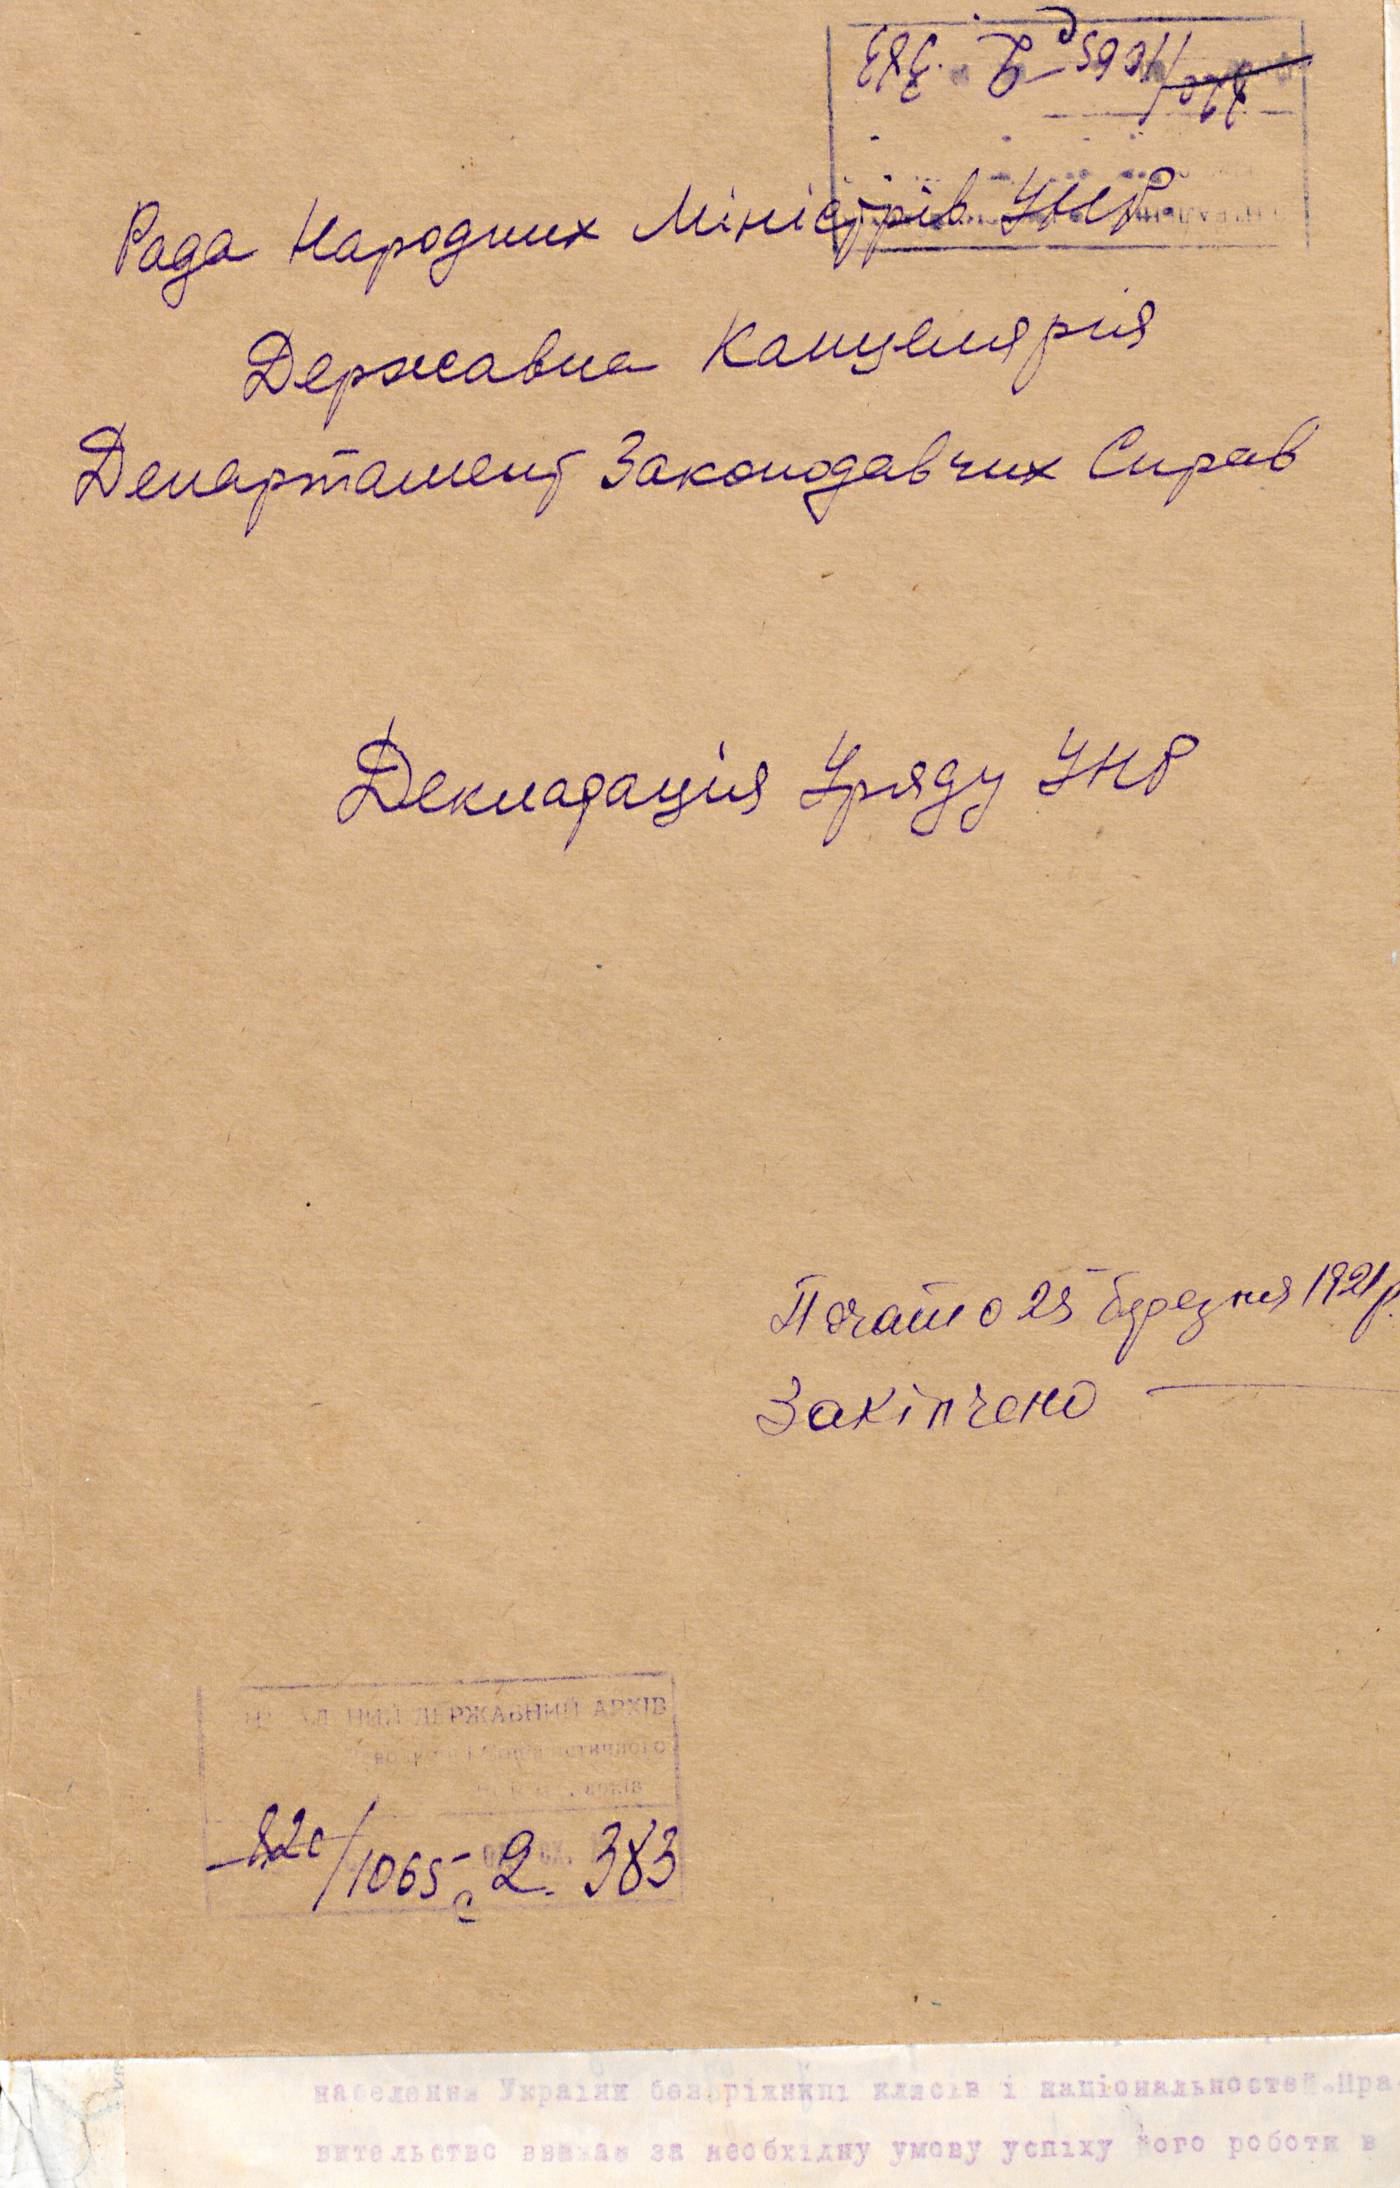 Рада Народних Міністрів УНР
Державна Канцелярія
Департамент Законодавчих Справ
Декларація Уряду УНР
Почато 25 березня 1921 р.
Закінчено
ДЕРЖАВНИЙ АРХІВ
82с/1065с 2. 383
населення України без ріжниці клясів і національностей. Пра-
вительство вважає за необхідну умову успіху його роботи в